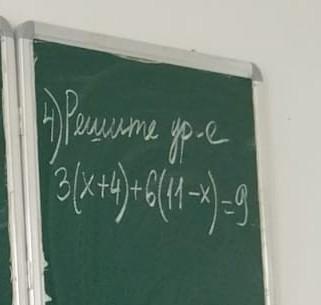 4) Решите ур-е
3(x+4)+6(11-x)=9